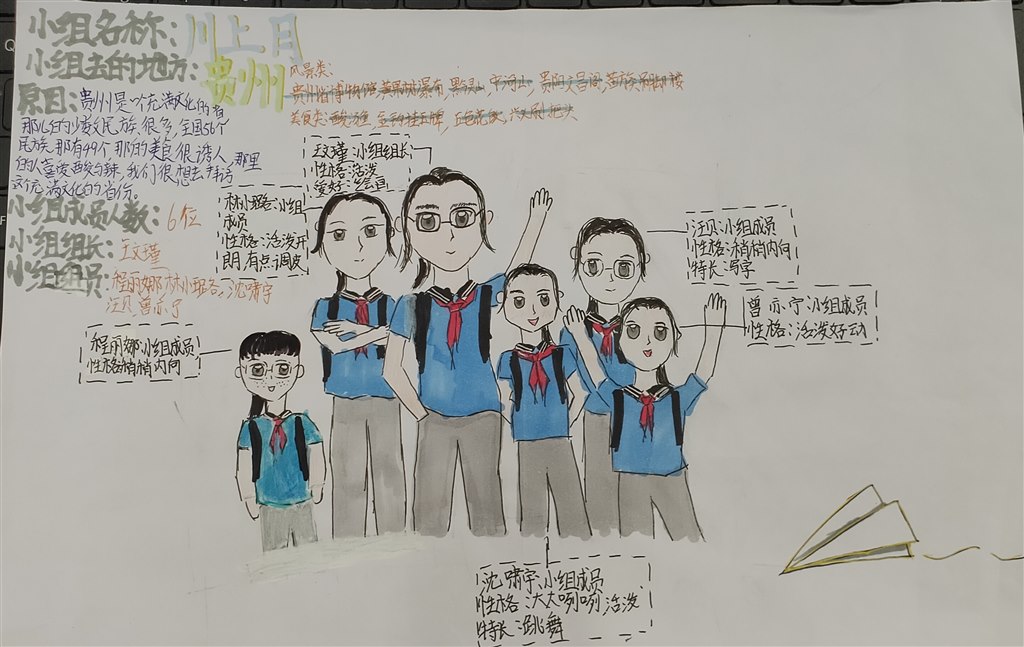 小组名称：川上月
小组去的地方：贵州
风景类：
贵州省博物馆，黄果树瀑布，黔灵山，
贵阳文昌阁，
美食类：酸汤鱼，
原因：贵州是一个充满文化的省
那儿的少数民族很多，全国56个
民族，那有49个，那的美食很诱人，那里
的人喜爱酸与辣，我们很想去拜访
这个充满文化的省份。
小组成员人数：6位
小组组长：王文瑾
小组组员：程丽娜，林小珞，沈啸宇
汪贝，曾亦宁
王文瑾：小组组长
性格：活泼
爱好：绘画
林小珞：小组
成员
性格：活泼开
朗，有点调皮
汪贝：小组成员
性格：稍稍内向
特长：写字
曾亦宁：小组成员
性格：活泼好动
程丽娜：小组成员
性格：稍稍内向
沈啸宇：小组成员
性格：大大咧咧，活泼
特长：跳舞